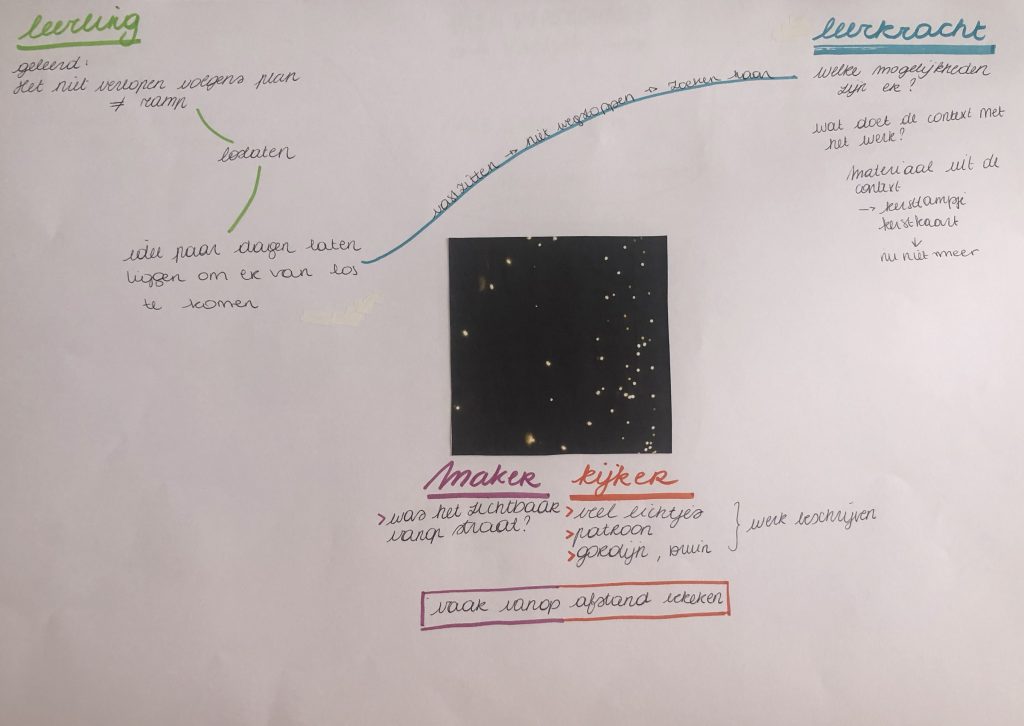 leerling
geleerd:
Het niet verlopen volgens plan
≠ ramp
loslaten
idee paar dagen laten
liggen om er van los
te komen
vastzitten → niet wegstoppen → zoeken naar
leerkracht
welke mogelijkheden
zijn er?
wat doet de context met
het werk?
materiaal uit de
context
→ kerstlampje
kerstkaart
↓
nu niet meer
maker
> was het zichtbaar
vanop straat?
kijker
> veel lichtjes
> patroon
> gordijn,
} werk beschrijven
vaak vanop afstand bekeken